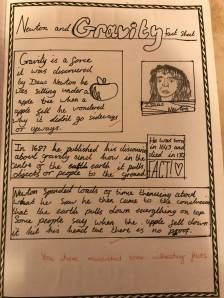 Newton and Gravity Fact Sheet
Gravity is a force
it was discovered
by Isaac Newton he
was sitting under a
apple tree when a
apple fell he wondered
why it didn't go sideways
or upways.
He was born
in 1643 and
died in
FACT
In 1687 he published his discoveries
about gravity and how in the
centre of the earth it pulls
objects or people to the ground
Newton spended loads of time thinking about
what he saw he then came to the conclusion
that the earth pulls down everything on top
Some people say when the apple fell down
it hit his head but there is no proof.
You have included some interesting facts